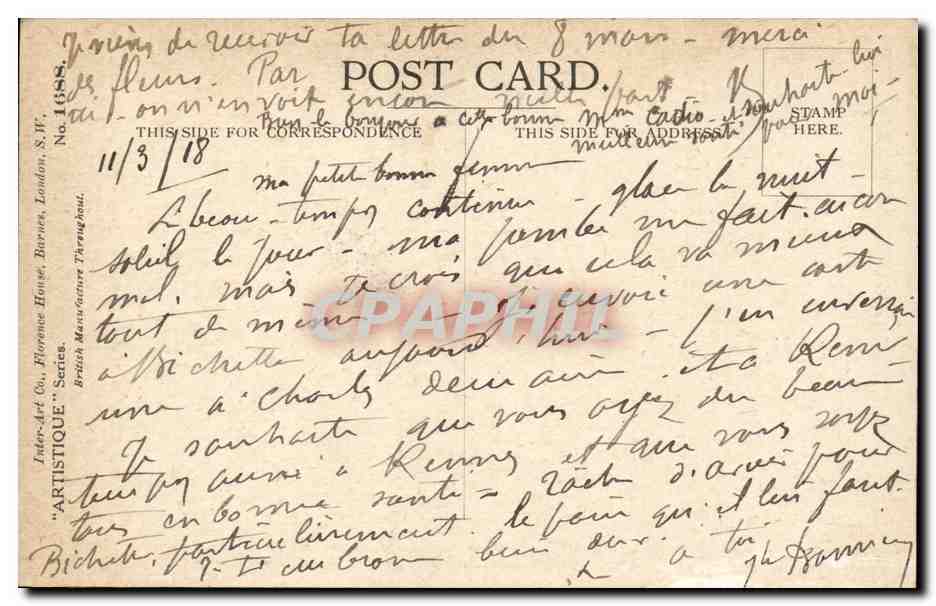 Je viens de recevoir ta lettre du 8 mars - merci
des fleurs. Par
ici - on n'en voit encore nulle part
Bien le bonjour a cette bonne Mme Cadio - et souhaite lui
meilleure santé pour moi -
POST CARD.
THIS SIDE FOR CORRESPONDENCE
THIS SIDE FOR ADDRESS
STAMP
HERE.
11/3/18
ma petite bonne femme
Le beau-temps continue - glace la nuit -
soleil le jour - ma jambe me fait encore
mal. mais je crois que cela va mieux
tout de même - J'envoie une carte
à Bichette aujourd'hui - j'en enverrai
une a Charles demain et a René
Je souhaite que vous ayez du beau
temps aussi à Rennes et que vous soyez
tous en bonne santé - tâche d'avoir pour
Bichette, particulièrement le pain qu'il leur faut.
Je t'embrasse bien dur. a toi
Inter-Art Co., Florence House, Barnes, London, S.W.
"ARTISTIQUE" Series. No. 1688.
British Manufacture Throughout.
CPAPHIL